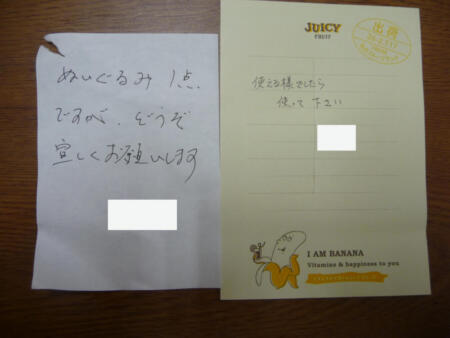 ぬいぐるみ 1点
ですが、どうぞ
宜しくお願いします
JUICY
FRUIT
出荷
使える様でしたら
使って下さい
I AM BANANA
Vitamins & happiness to you